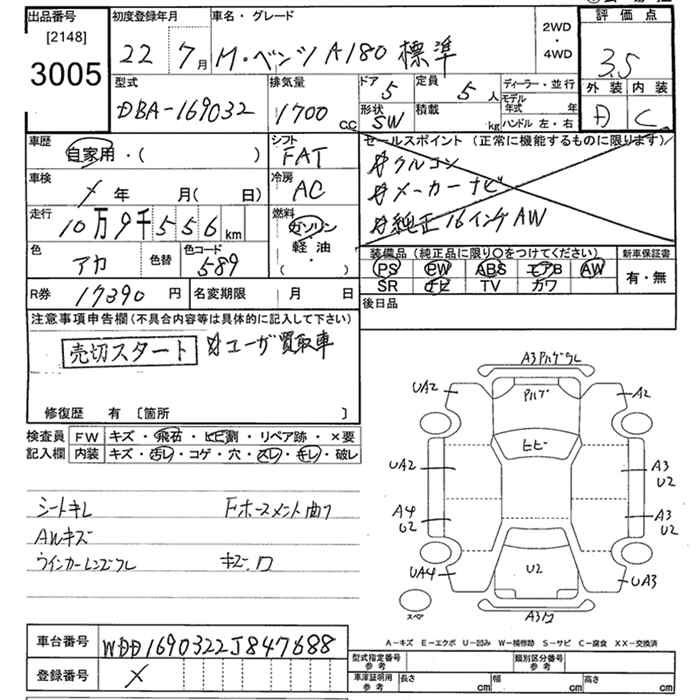 出品番号 初度登録年月 車名・グレード 2WD ・ 4WD 評価点
[2148]
3005 22 年 7 月 M・ベンツ A180 標準 3.5
型式 排気量 ドア 定員 ディーラー・並行 外装 内装
DBA-169032 1700 cc 5 5 人 モデル年式 年 D C
形状 積載 ハンドル 左・右
SW kg
車歴 シフト セールスポイント (正常に機能するものに限ります)
自家用・( ) FAT
車検 冷房 クルコン
メ 年 月( 日) AC メーカーナビ
走行 燃料 純正16インチAW
10万9千556 km ガソリン
軽油
( ・ )
色 色替 色コード 装備品 (純正品に限り○をつけてください) 新車保証書
アカ 589 PS PW ABS エアB AW 有・無
SR ナビ TV カワ
R券 17390 円 名変期限 月 日 後日品
注意事項申告欄(不具合内容等は具体的に記入して下さい)
売切スタート ユーザ買取車
修復歴 有 [箇所 ]
検査員 FW キズ・飛石・ヒビ割・リペア跡・×要
記入欄 内装 キズ・汚レ・コゲ・穴・スレ・キレ・破レ
シートキレ Fホースメント曲り
AWキズ
ウインカーレンズワレ
A2
UA2
ヒビ
UA2
A3
U2
A4
U2
A3
U2
U2
UA4
UA3
スペア
A-キズ E-エクボ U-凹み W-補修跡 S-サビ C-腐食 XX-交換済
車台番号 WDD1690322J847688
登録番号 メ
型式指定番号 参考 類別区分番号 参考
車庫証明用 参考 長さ cm 幅 cm 高さ cm